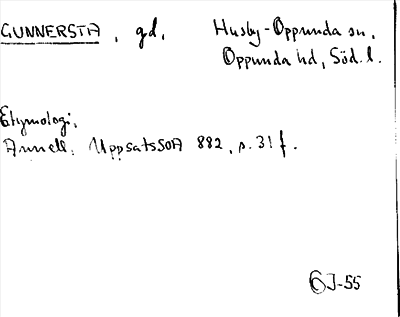 GUNNERSTA, gd, Husby-Oppunda sn,
Oppunda hd, Söd.l.
Etymologi.
Annell: UppsatsSOA 882, p.31 f.
GJ-55